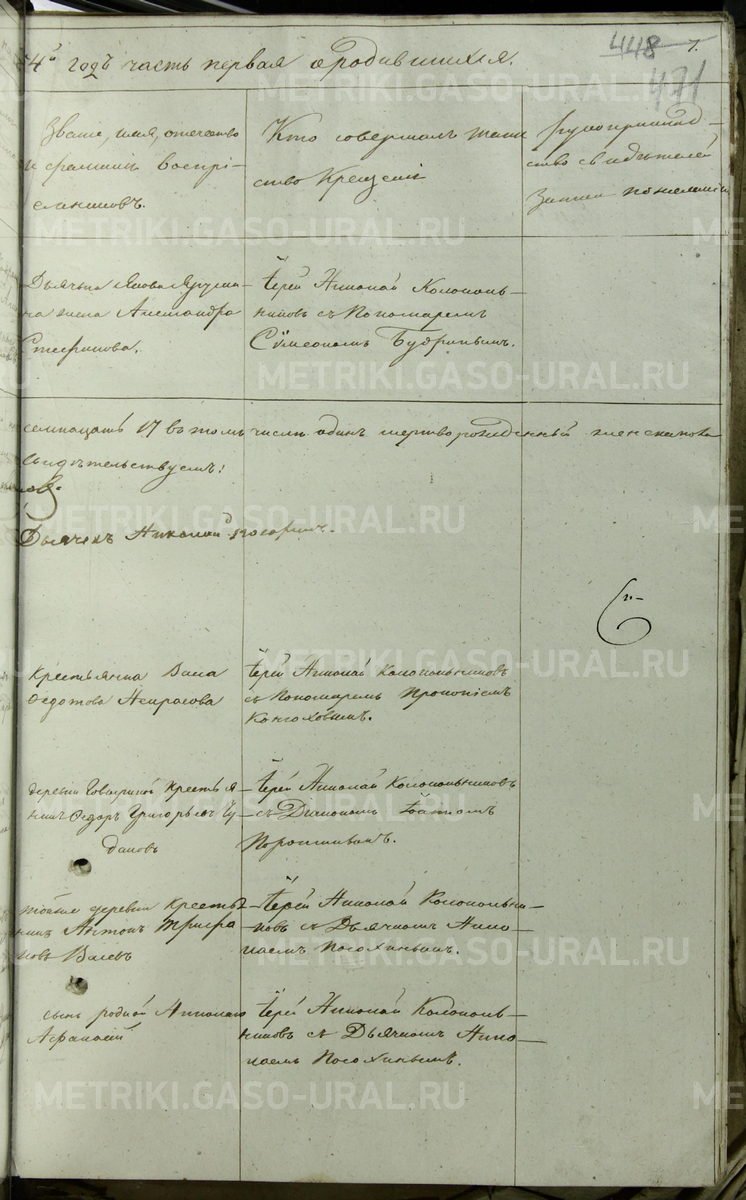 448 7.
471
4й годъ часть первая о родившихся.
Званіе, имя, отечество
и фамилія воспрі-
емниковъ.
Кто совершалъ таин
ство Крещенія
Рукоприклад-
ство свидѣтелей
записи по желанію
Дьячка Якова
жена Александра
Стефанова.
Іерей Николай Колоколь-
никовъ съ Пономаремъ
Сѵмеономъ Будринымъ.
семнацать 17 въ томъ числѣ одинъ мертворожденный женскаго
свидѣтельствуемъ:
Дьячекъ Николай
Крестьянка Васса
Ѳедотова Некрасова
Іерей Николай Колокольниковъ
съ Пономаремъ Прокопіемъ
деревни Крестья
нинъ Ѳедоръ Григорьевъ
Іерей Николай Колокольниковъ
съ Діакономъ
той же деревни Крестья
нинъ Антонъ
Іерей Николай Колокольни-
ковъ съ Дьячкомъ Нико-
лаемъ Посохинымъ.
сынъ родной Николаю
Афанасій
Іерей Николай Колоколь-
никовъ съ Дьячкомъ Нико-
лаемъ Посохинымъ.
METRIKI.GASO-URAL.RU